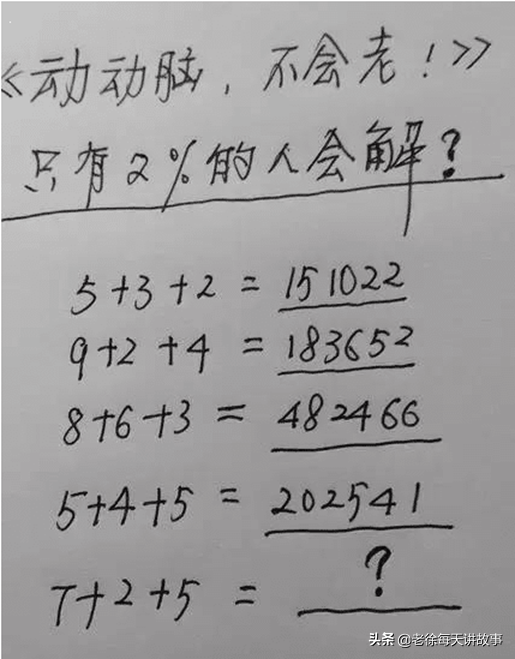 《动动脑，不会老！>>
只有2%的人会解？
5+3+2=151022
9+2+4=183652
8+6+3=482466
5+4+5=202541
7+2+5=?
头条@老徐每天讲故事